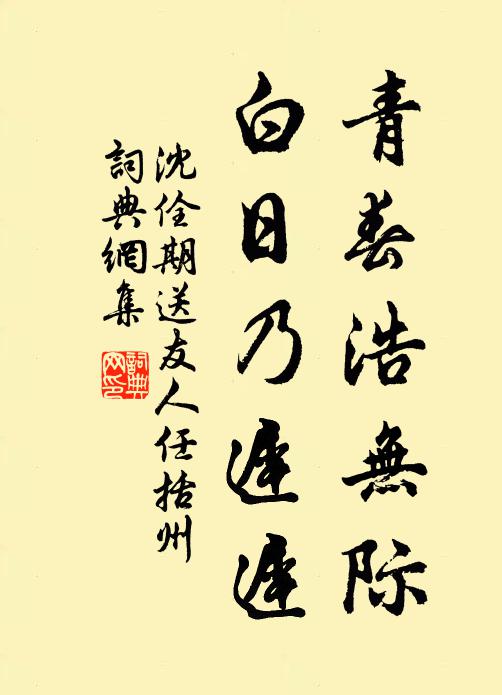 青春浩無际
白日乃遲遲
沈佺期送友人任括州
詞典網集
詞典网印